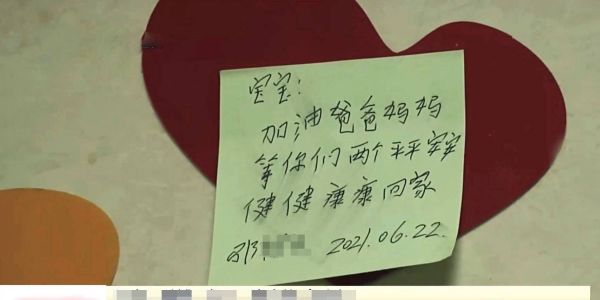 宝宝:
加油爸爸妈妈
等你们两个平平安安
健健康康回家
2021.06.22.